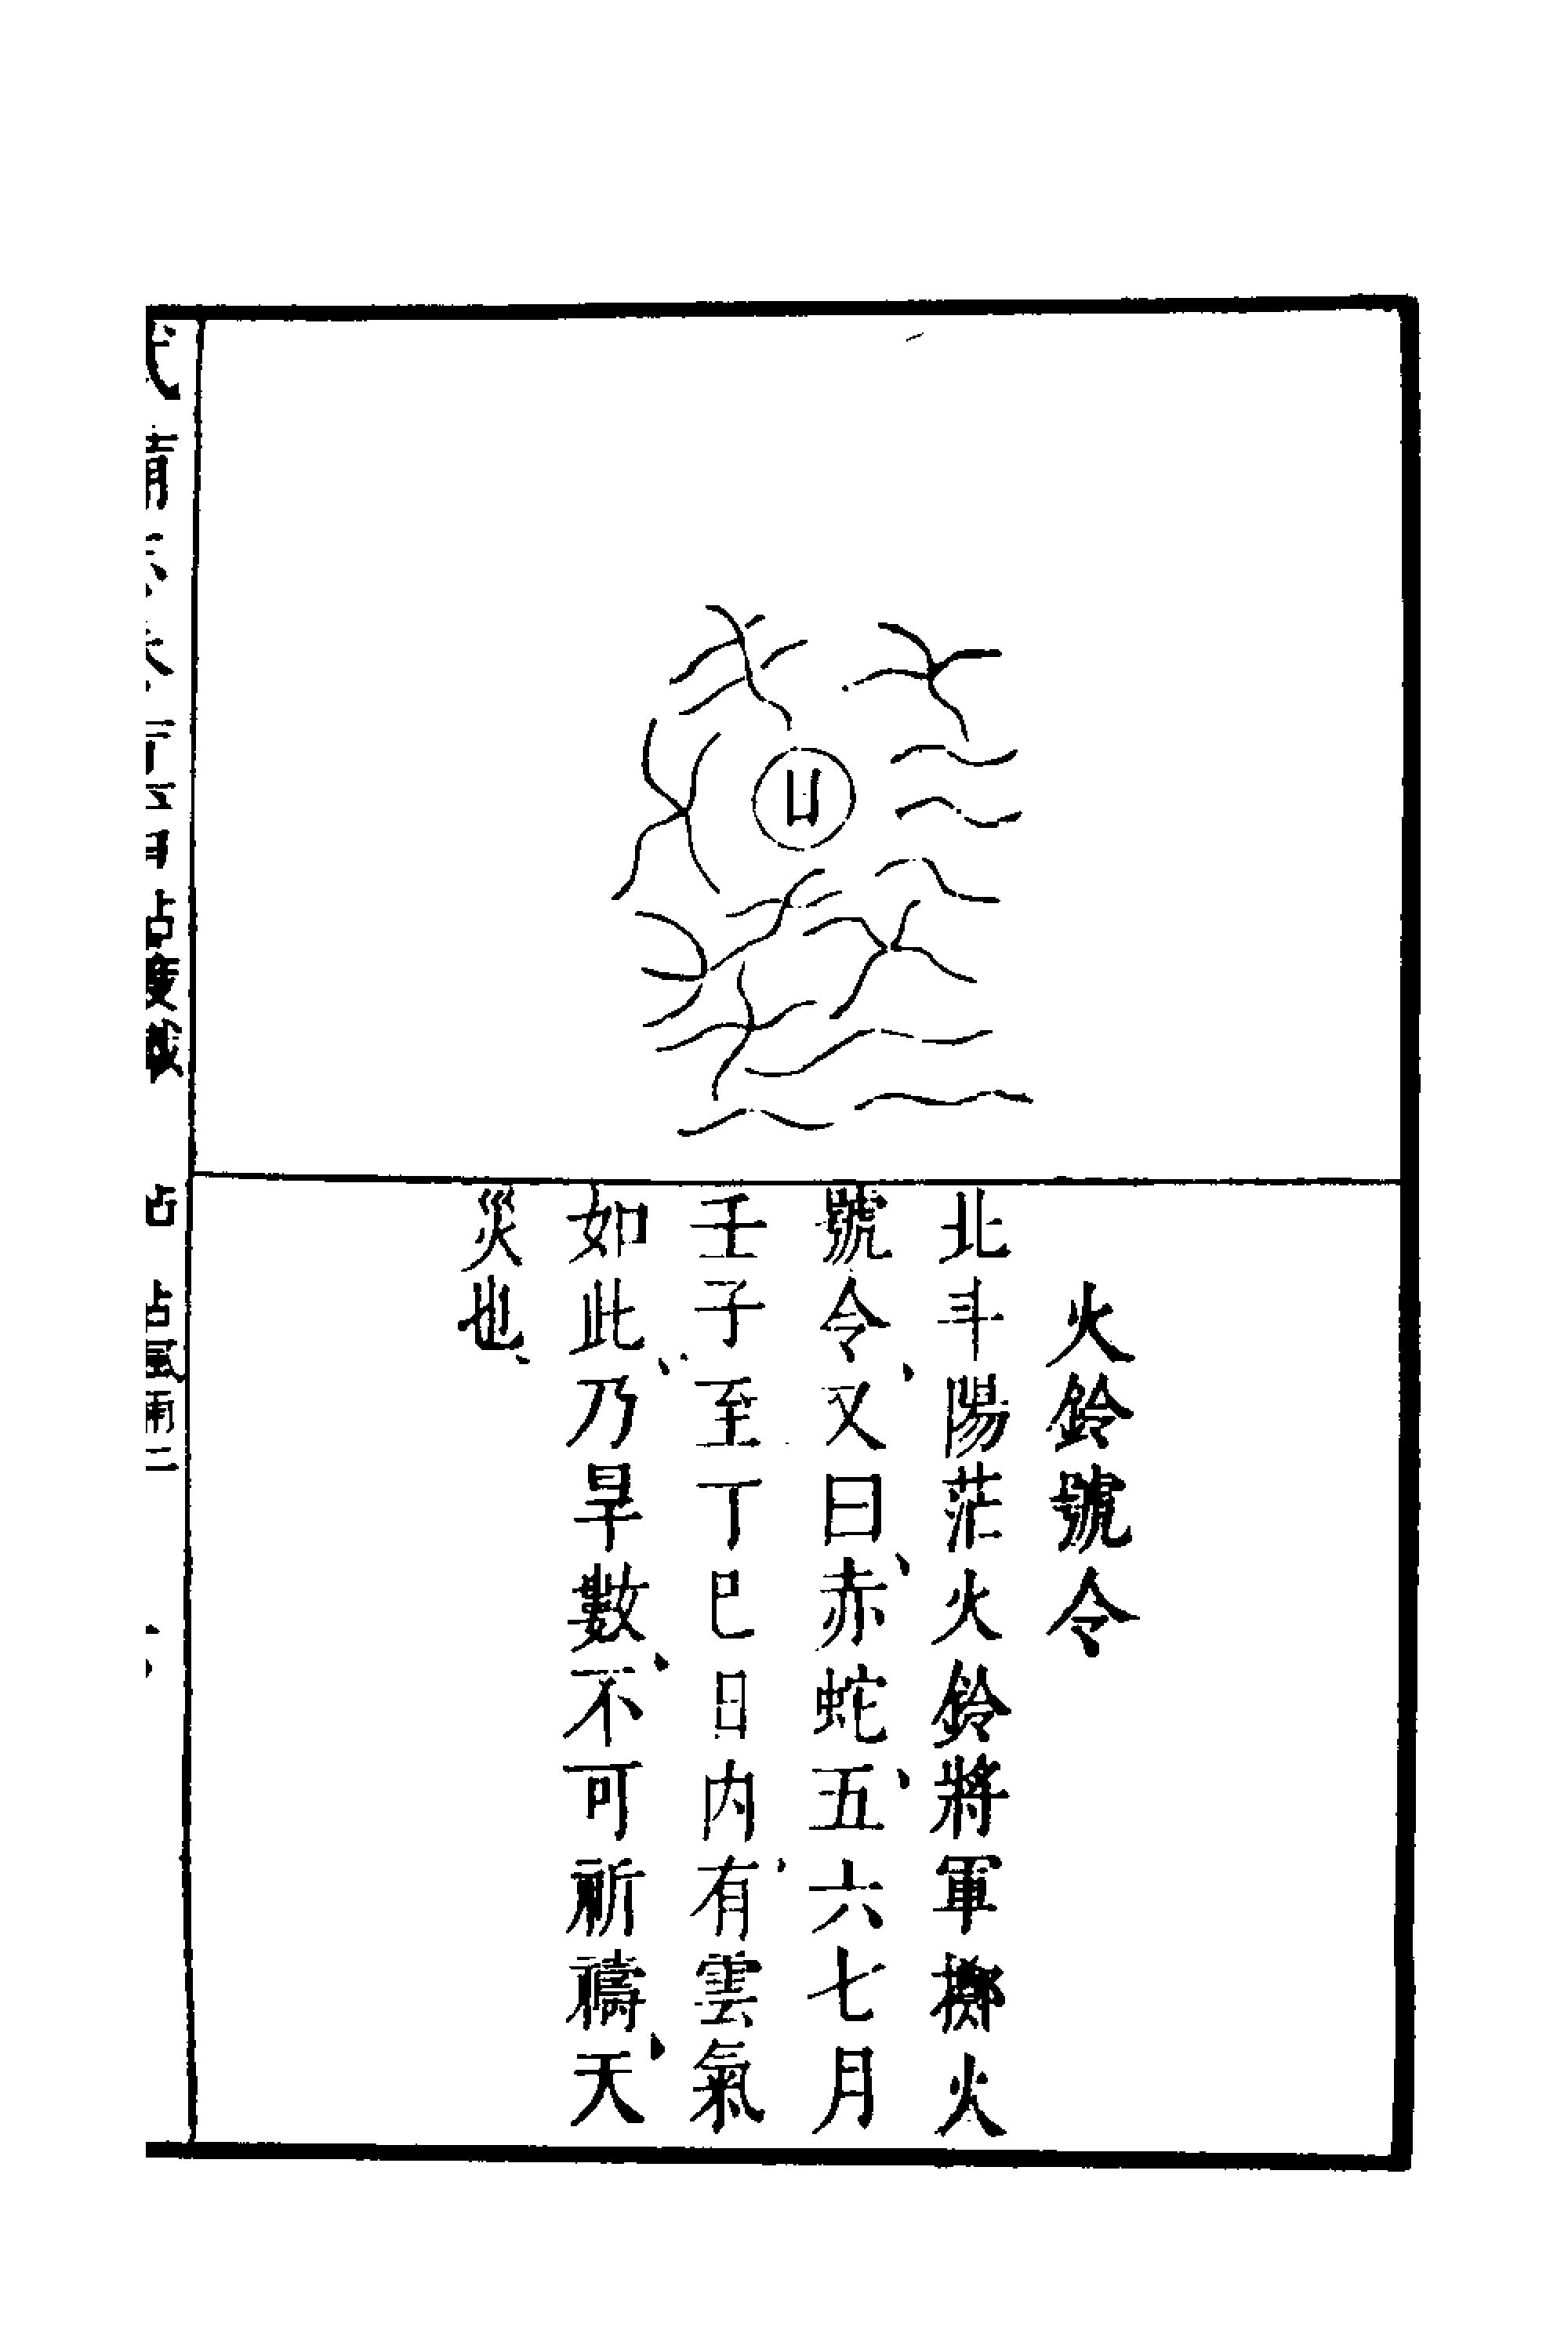 火鈴號令
北斗陽茫火鈴將軍擲火
號令又曰赤蛇五六七月
壬子至丁巳日内有雲氣
如此乃旱數不可祈禱天
災也
日
占度數
占
占風雨二